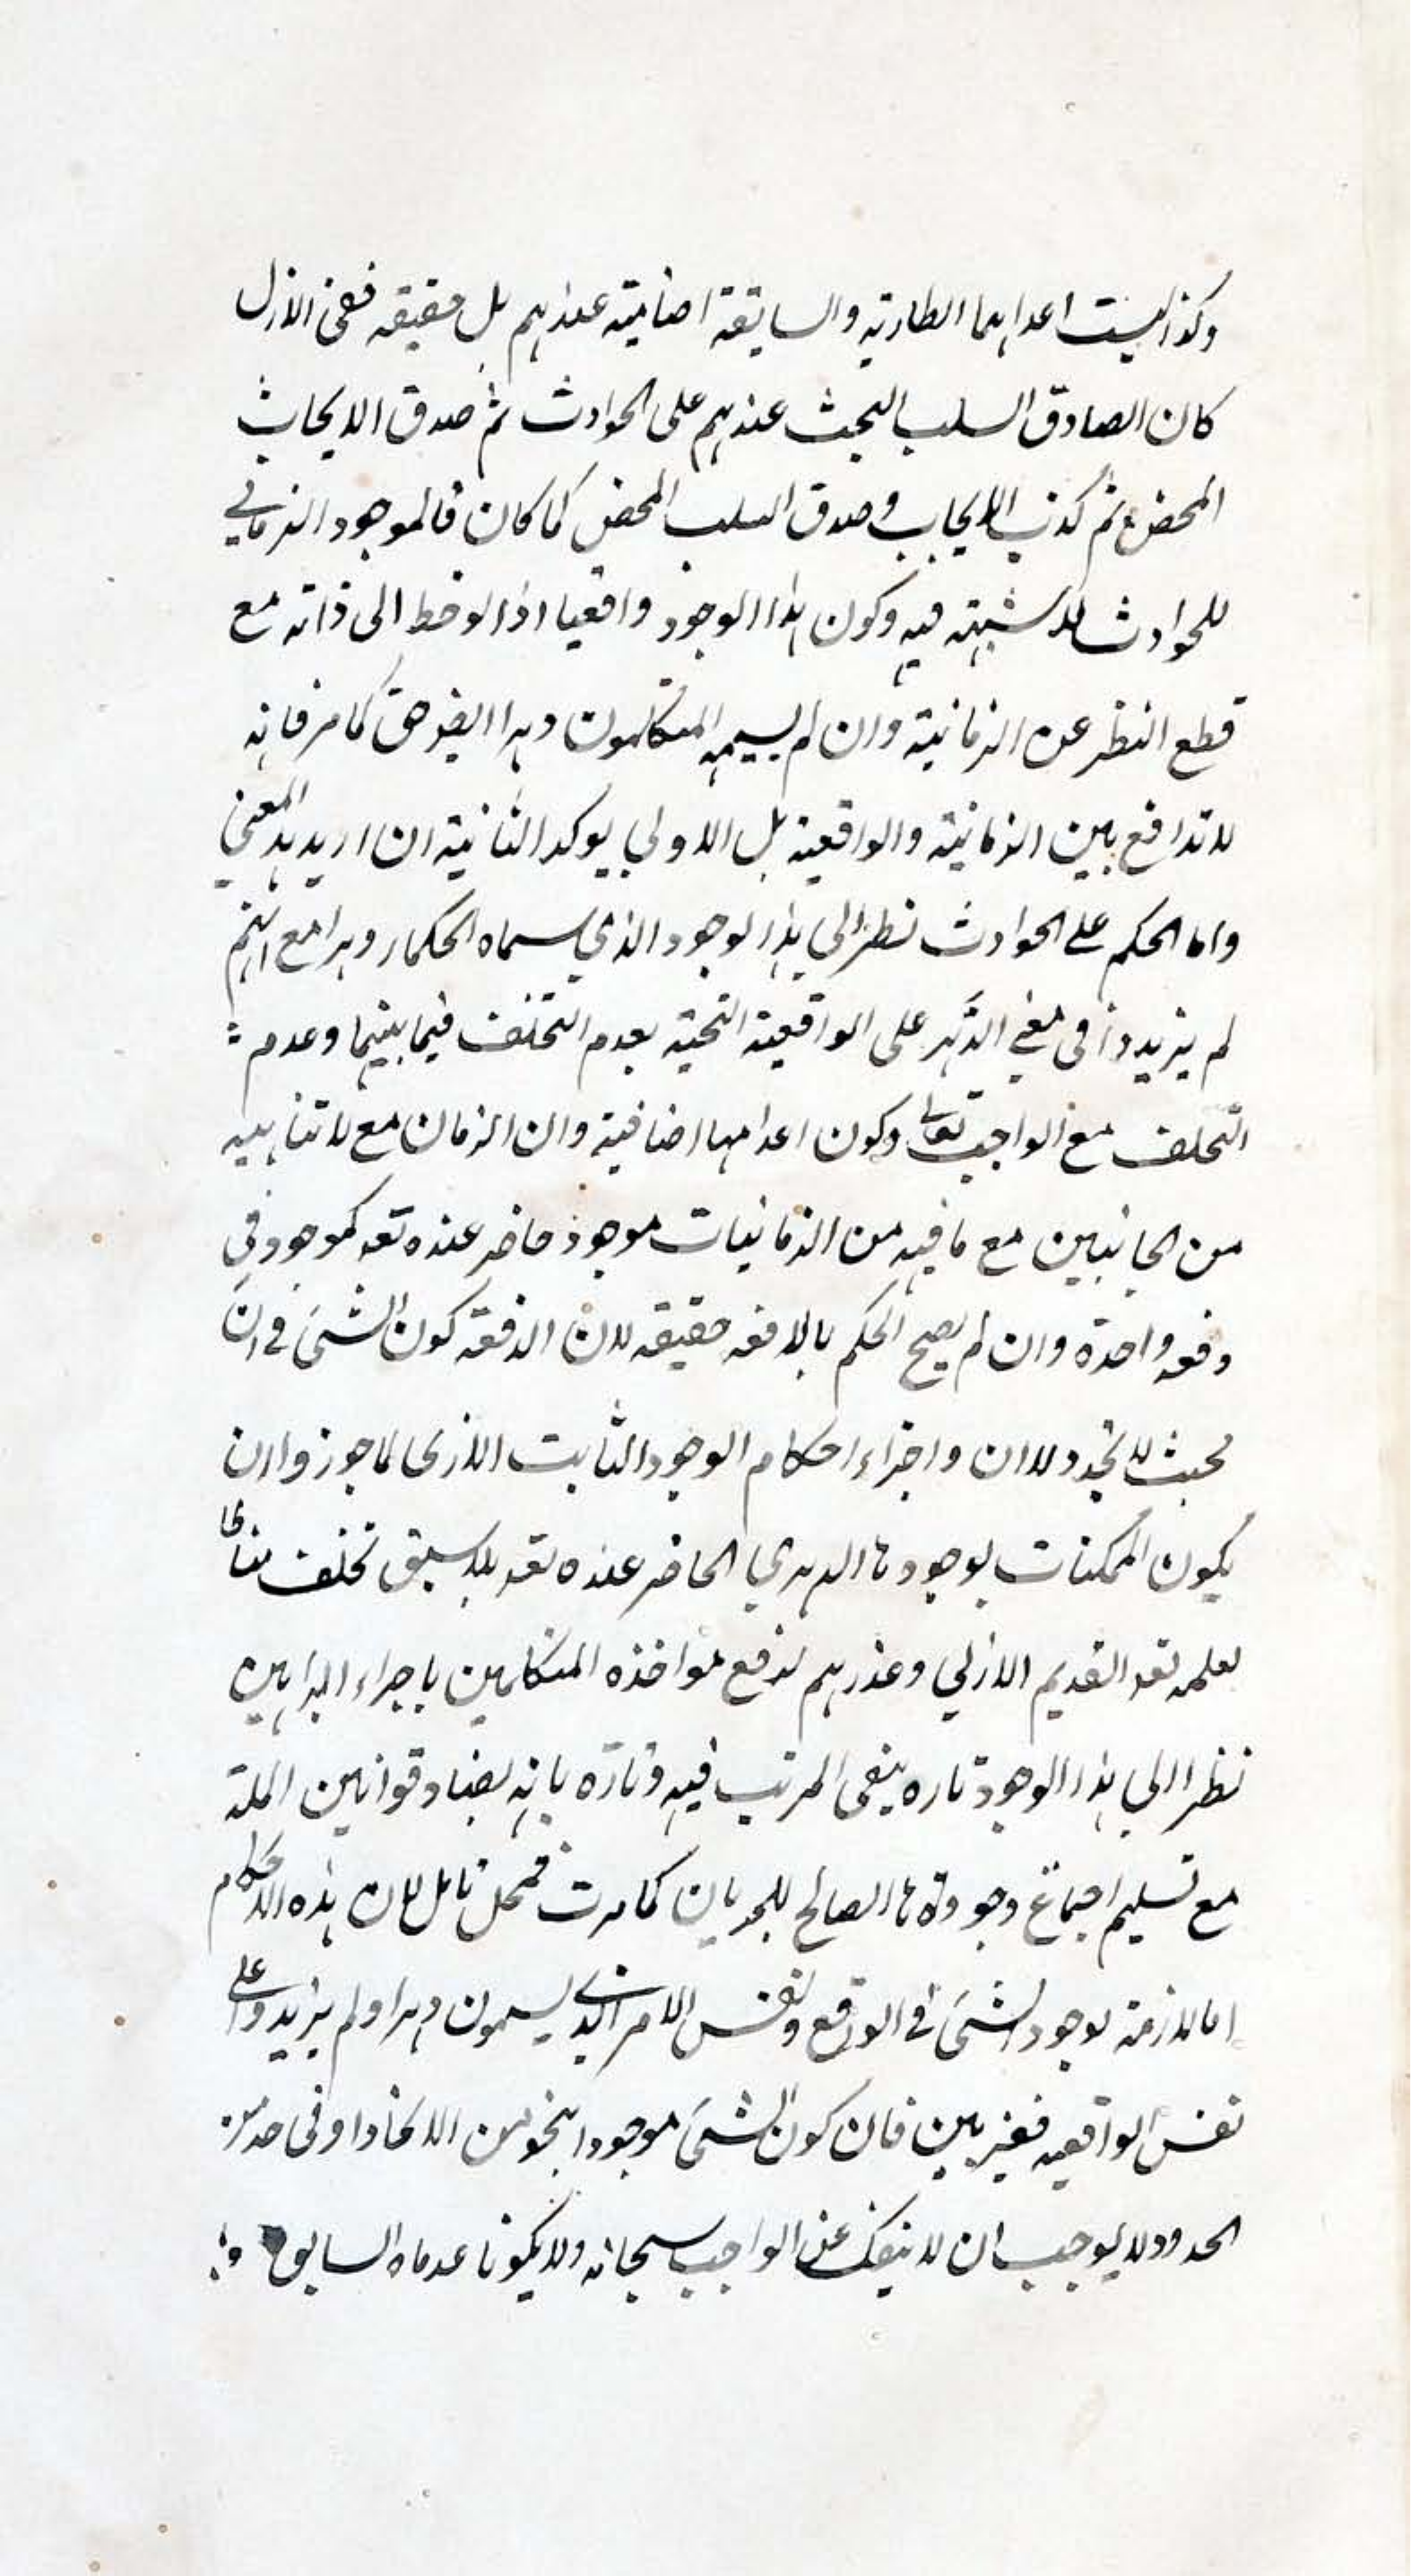 وكذا ليست اعدامها الطارية والسابقة اضافية عندهم بل حقيقه ففى الازل
كان الصادق السلب البحت عندهم على الحوادث ثم صدق الايجاب
المحض ثم كذب الايجاب وصدق السلب المحض كما كان فالموجود الزماني
للحوادث لا شبهته فيه وكون هذا الوجود واقعيا اذا لوحظ الى ذاته مع
قطع النظر عن الزمانية وان لم يسمه المتكلمون دهرا ايضا حق كما مر فانه
لا تدافع بين الزمانية والواقعية بل الاولى يوكد الثانية ان اريد بهذا المعنى
واما الحكم على الحوادث نظرا الى هذا الوجود الذي سماه الحكماء دهرا مع انهم
لم يزيدوا فى معنى الدهر على الواقعية البحتة بعدم التخلف فيما بينها وعدم
التخلف مع الواجب تعالى وكون اعدامها اضافية وان الزمان مع لا تناهيه
من الجانبين مع ما فيه من الزمانيات موجود حاضر عنده تعه كموجود في
دفعه واحدة وان لم يصح الحكم بالدفعه حقيقه لان الدفعة كون الشئ في ان
بحيث لا تجدد لان واجراء احكام الوجود الثابت الازلى لما جوزوا ان
يكون الممكنات بوجودها الدهري الحاضر عنده تعه بلا سبق تخلف مناطا
لعلمه تعه القديم الازلي وعذرهم لدفع مواخذه المتكلمين باجراء البراهين
نظرا الى هذا الوجود تاره بنفى الترتب فيه وتارة بانه يضاد قوانين الملة
مع تسليم اجماع وجوداتها الصالح للجريان كما مرت فمحل تامل لان هذه الاحكام
اما لازمة لوجود الشئ في الواقع ونفس الامر الذي يسمون دهرا ولم يزيدوا على
نفس الواقعيه فغير بين فان كون الشئ موجودا بنحو من الانحاء او فى حد من
الحدود لا يوجب ان لا ينفك عن الواجب سبحانه ولا يكونا عدماه السابق و